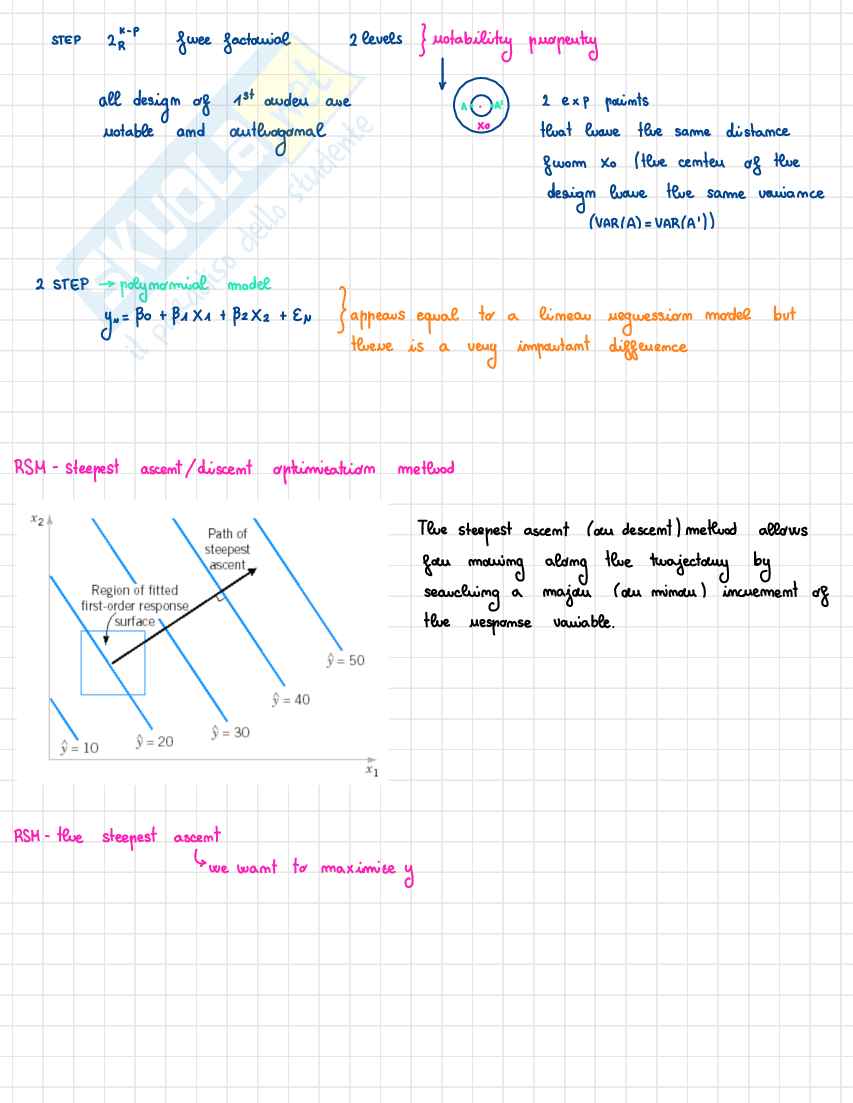 STEP 2_R^{K-P} free factorial 2 levels } rotability property
all design of 1st order are
rotable and orthogonal
A A' X0
2 exp points
that have the same distance
from X0 (the center of the
design have the same variance
(VAR(A) = VAR(A'))
2 STEP → polynomial model
yN = β0 + β1 X1 + β2 X2 + EN } appears equal to a linear regression model but
there is a very important difference
RSM - steepest ascent/discent optimisation method
x2
Path of
steepest
ascent
Region of fitted
first-order response
surface
ŷ = 10
ŷ = 20
ŷ = 30
ŷ = 40
ŷ = 50
x1
The steepest ascent (or descent) method allows
for moving along the trajectory by
searching a major (or minor) increment of
the response variable.
RSM - the steepest ascent
↳ we want to maximise y
SKUOLA.net
il paradiso dello studente